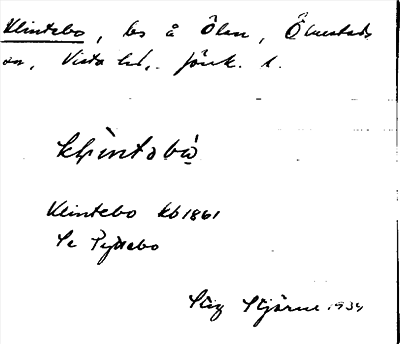 Klintebo, ls å Ölan, Ölmstads
sn, Vista hd,. Jönk. l.
Klintebo kb 1861
Se Pyttebo
Stig Stjärne 1934